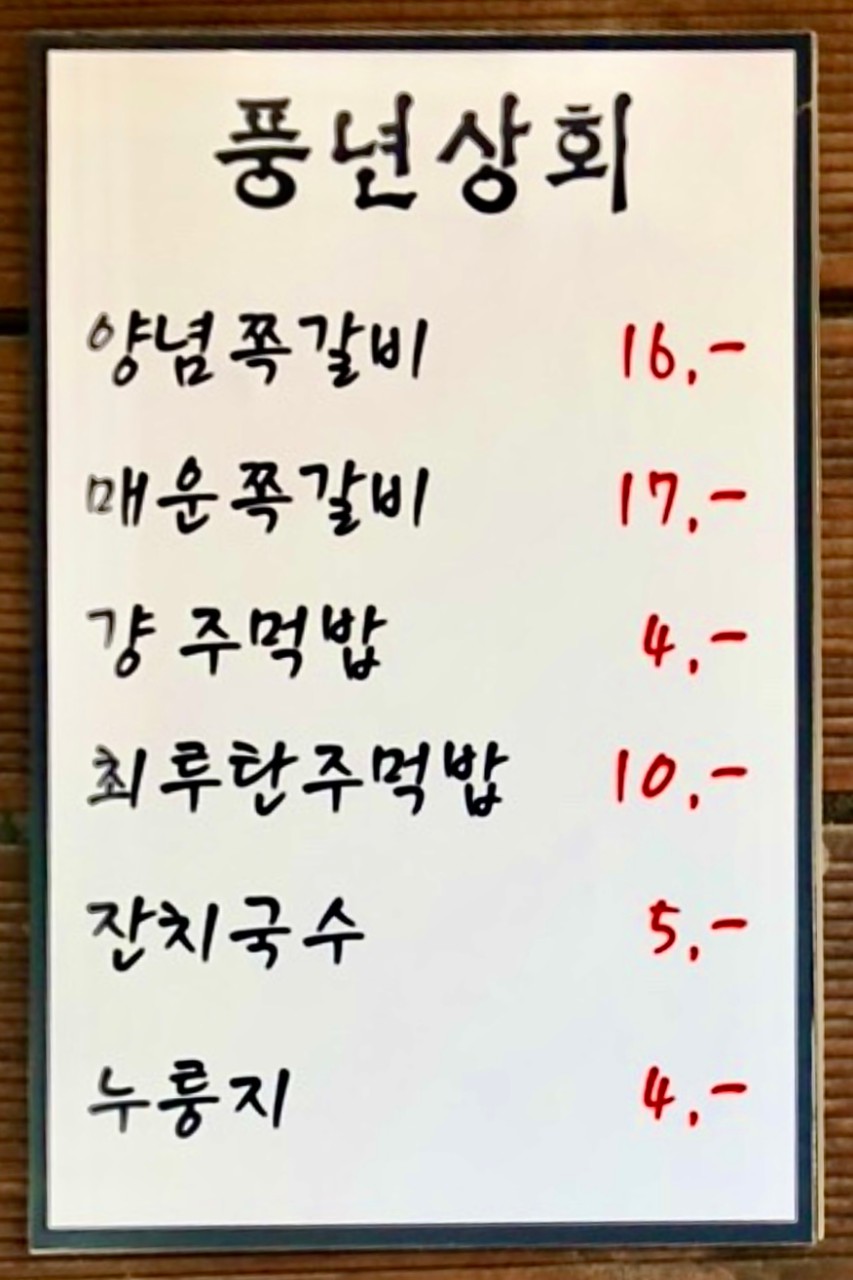 풍년상회
양념쪽갈비 16,-
매운쪽갈비 17,-
걍 주먹밥 4,-
최루탄주먹밥 10,-
잔치국수 5,-
누룽지 4,-